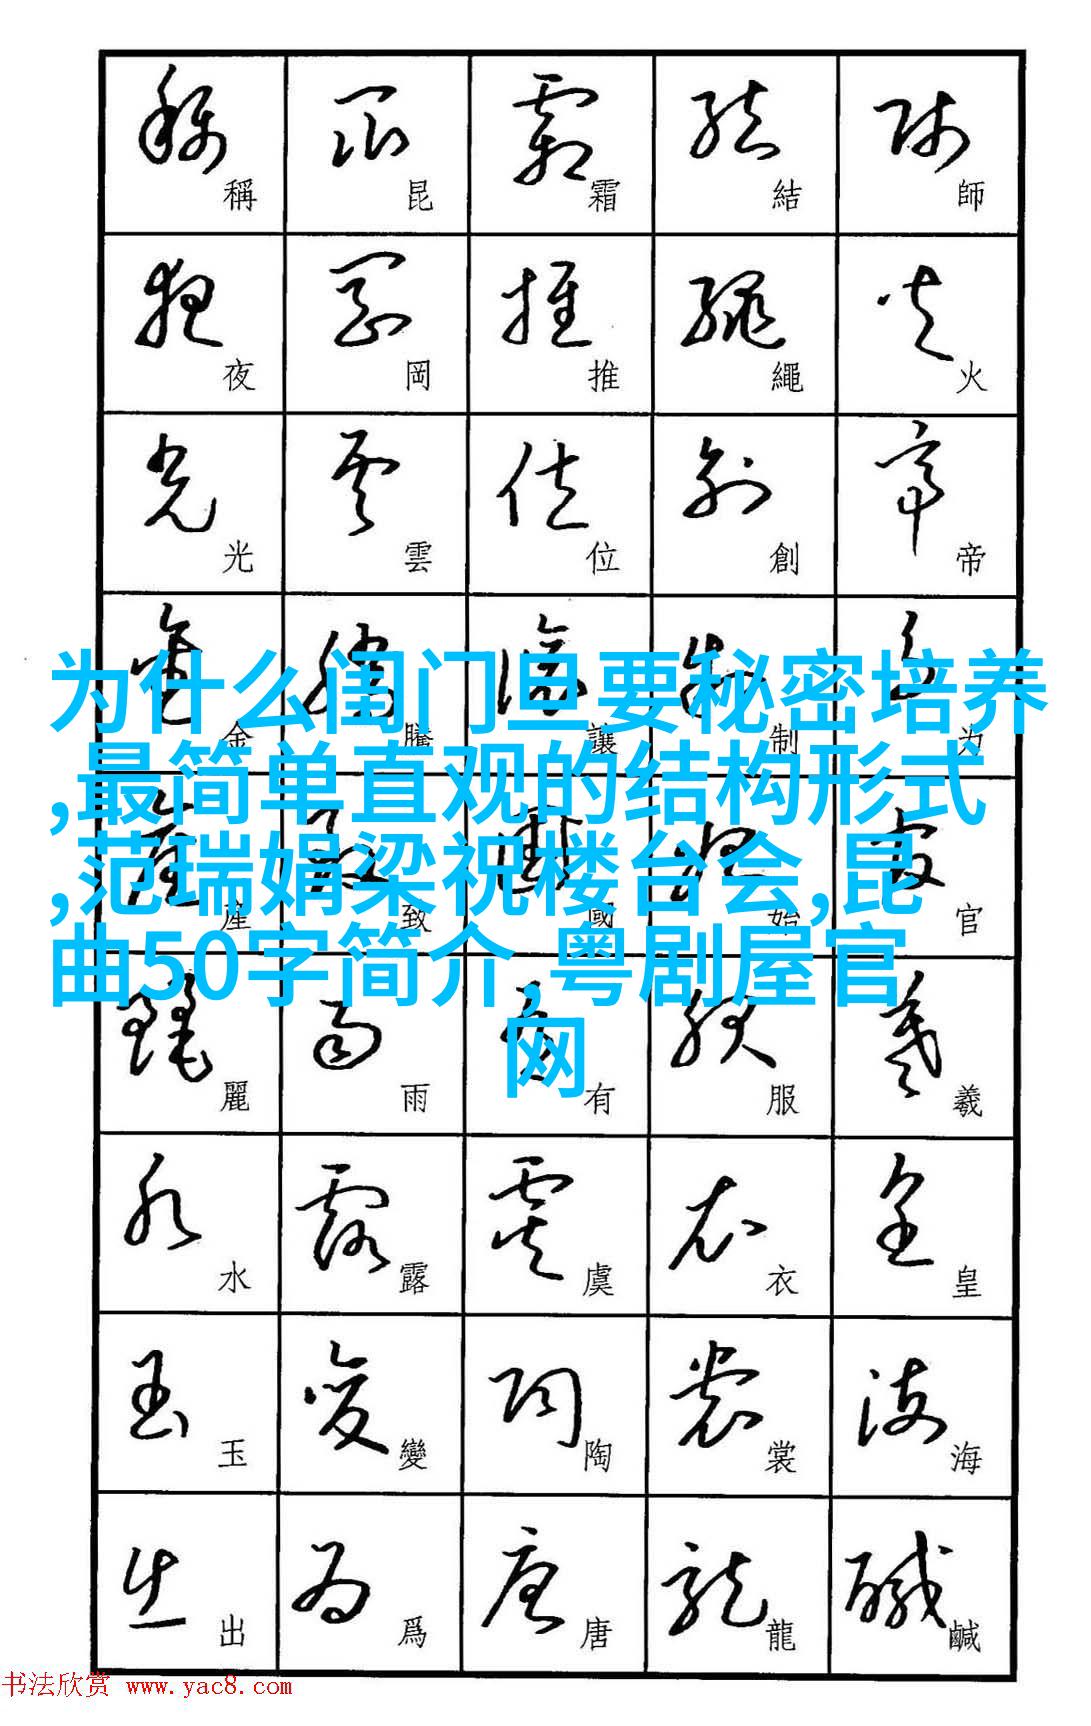 稱 昆 霜 結 師
夜 岡 推 繩 火
光 雲 位 創 帝
金 騰 讓 制 为
为什么闺门旦要秘密培养
,最简单直观的结构形式
,范瑞娟梁祝楼台会,昆
曲50字简介,粤剧屋官
网
産 致 國 始 官
麗 雨 有 服 羲
水 露 虞 衣 皇
玉 變 陶 裳 海
出 爲 唐 龍 鹹
书法欣赏 www.yac8.com